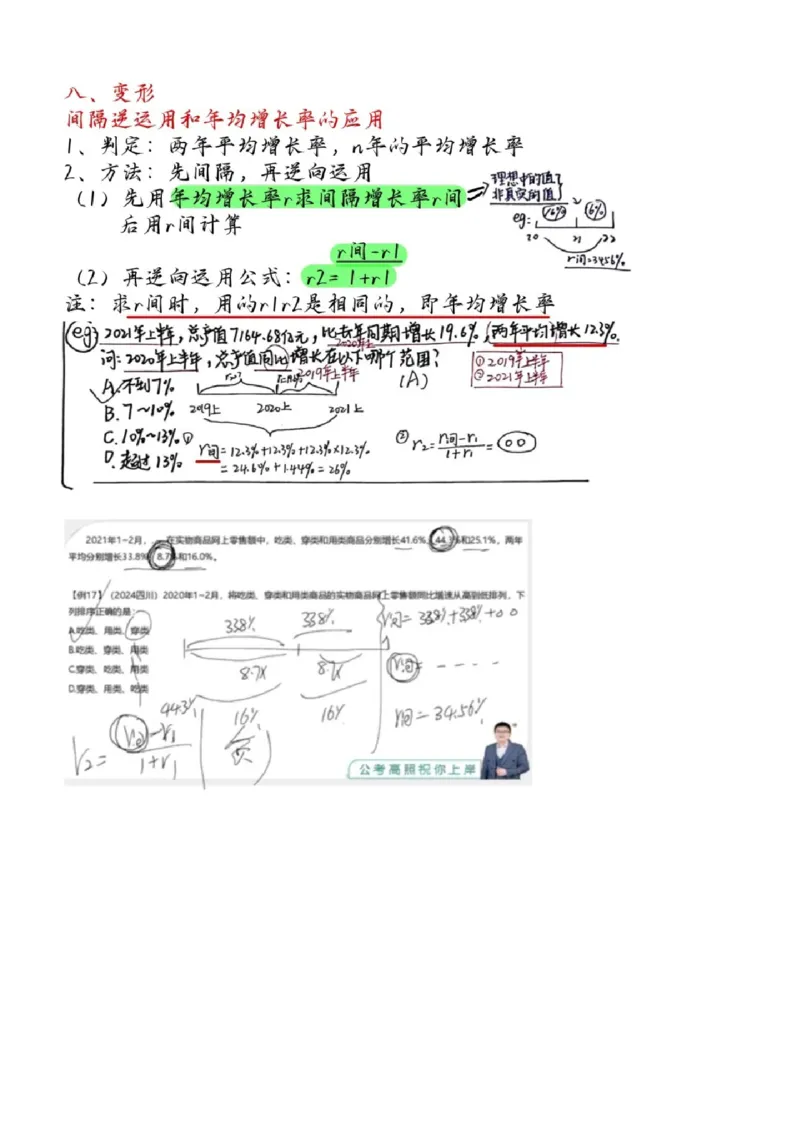 八、变形
间隔逆运用和年均增长率的应用
1、判定：两年平均增长率，n年的平均增长率
2、方法：先间隔，再逆向运用
（1）先用年均增长率r求间隔增长率r间
后用r间计算
理想中的值
非真实的值
eg: 16% 16%
20 21 22
r间=34.56%
r间-r1
（2）再逆向运用公式：r2= 1+r1
注：求r间时，用的r1r2是相同的，即年均增长率
eg 2021年上半年，总产值7164.68亿元，比去年同期增长19.6%，两年平均增长12.3%.
2020年上
问：2020年上半年，总产值同比增长在以下哪个范围？ (A)
2019年上半年
①2019年上半年
②2021年上半年
A.不到7%
B.7~10%
C.10%~13%
D.超过13%
2019上 2020上 2021上
① r间=12.3%+12.3%+12.3%×12.3%
=24.6%+1.44%=26%
② r2=r间-r1/1+r1=
2021年1-2月，……在实物商品网上零售额中，吃类、穿类和用类商品分别增长41.6%、44.3%和25.1%，两年
平均分别增长33.8%、8.7%和16.0%。
【例17】（2024四川）2020年1~2月，将吃类、穿类和用类商品的实物商品网上零售额同比增速从高到低排列，下
列排序正确的是：
A.吃类、用类、穿类
B.吃类、穿类、用类
C.穿类、吃类、用类
D.穿类、用类、吃类
33.8% 33.8%
r间= 33.8%+33.8%+00
8.7% 8.7%
r间= ----
44.3%
16% 16%
r间=34.56%
r2= r间-r1/1+r1
公考高照祝你上岸